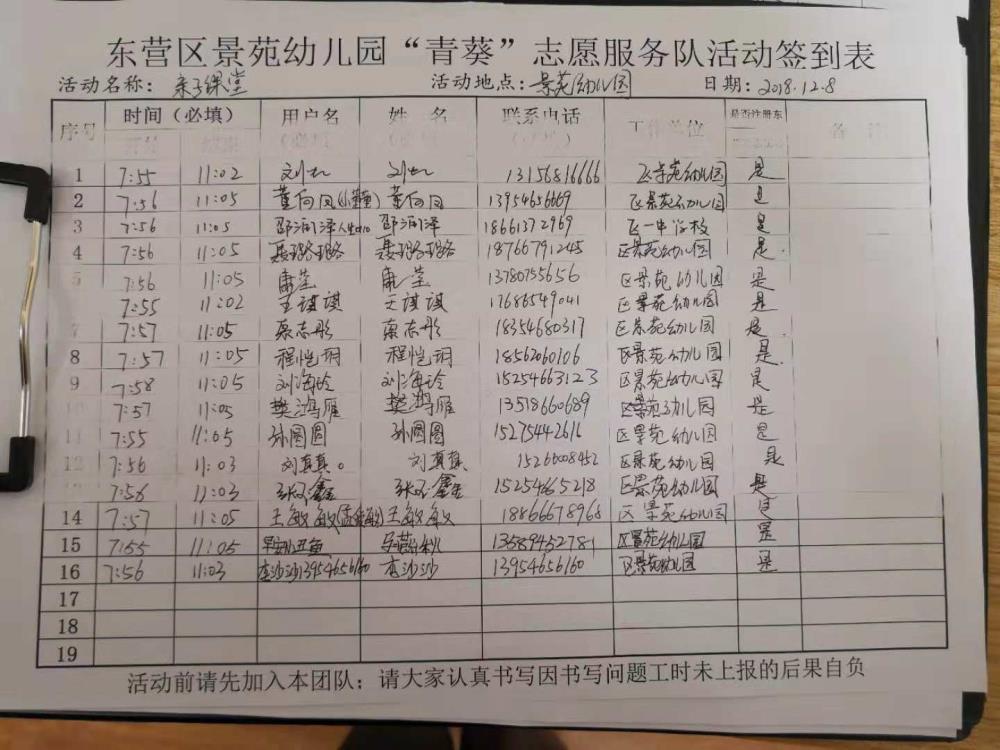 东营区景苑幼儿园“青葵”志愿服务队活动签到表
活动名称：亲子课堂 活动地点：景苑幼儿园 日期：2018.12.8
序号 时间（必填） 用户名 姓名 联系电话 工作单位 是否注册东 备注
1 7:55 11:02 13156816666 区景苑幼儿园 是
2 7:56 11:05 董向凤 董向凤 13954656669 区景苑幼儿园 是
3 7:56 11:05 邵润泽 邵润泽 18661372969 区一中学校 是
4 7:56 11:05 聂璐璐 聂璐璐 18766791245 区景苑幼儿园 是
5 7:56 11:05 康莹 康莹 13780755656 区景苑幼儿园 是
7:55 11:02 王谋谋 王谋谋 17686549041 区景苑幼儿园 是
7 7:57 11:05 蔡志彤 蔡志彤 18354680317 区景苑幼儿园 是
8 7:57 11:05 程恺玥 程恺玥 18562060106 区景苑幼儿园 是
9 7:58 11:05 刘海玲 刘海玲 15254663123 区景苑幼儿园 是
10 7:57 11:05 樊鸿雁 樊鸿雁 13518660689 区景苑幼儿园 是
11 7:55 11:05 孙圆圆 孙圆圆 15275442616 区景苑幼儿园 是
12 7:56 11:03 刘真真 刘真真 1526008452 区景苑幼儿园 是
7:56 11:03 15254665218 区景苑幼儿园 是
14 7:57 11:05 王敏敏 王敏敏 18866678968 区景苑幼儿园 是
15 7:55 11:05 13589452781 区景苑幼儿园 是
16 7:56 11:03 李沙沙13954656160 李沙沙 13954656160 区景苑幼儿园 是
17
18
19
活动前请先加入本团队；请大家认真书写因书写问题工时未上报的后果自负